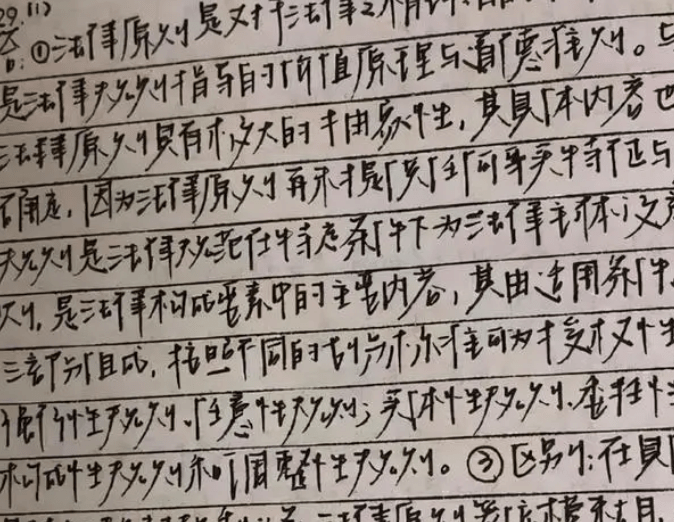 29.(1)
答:①法律原则是对于法律
是法律规则指导的价值原理与道德准则。与
法律原则具有极大的抽象性,其具体内容也
不确定,因为法律原则再不提供任何事实特征与
规则是法律规范在特定条件下为法律主体设定
则,是法律构成要素中的主要内容,其由适用条件
三部分组成,按照不同的划分标准可为授权性
强行性规则、任意性规则;实体性规则、委任性
构成性规则和调整性规则。③区别:在具
法律原则